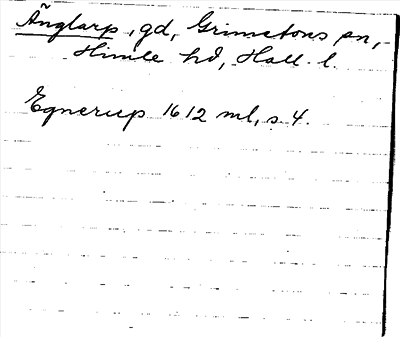 Änglarp, gd, Grimetons sn,
Himle hd, Hall. l.
Egnerup 1612 ml, s. 4.